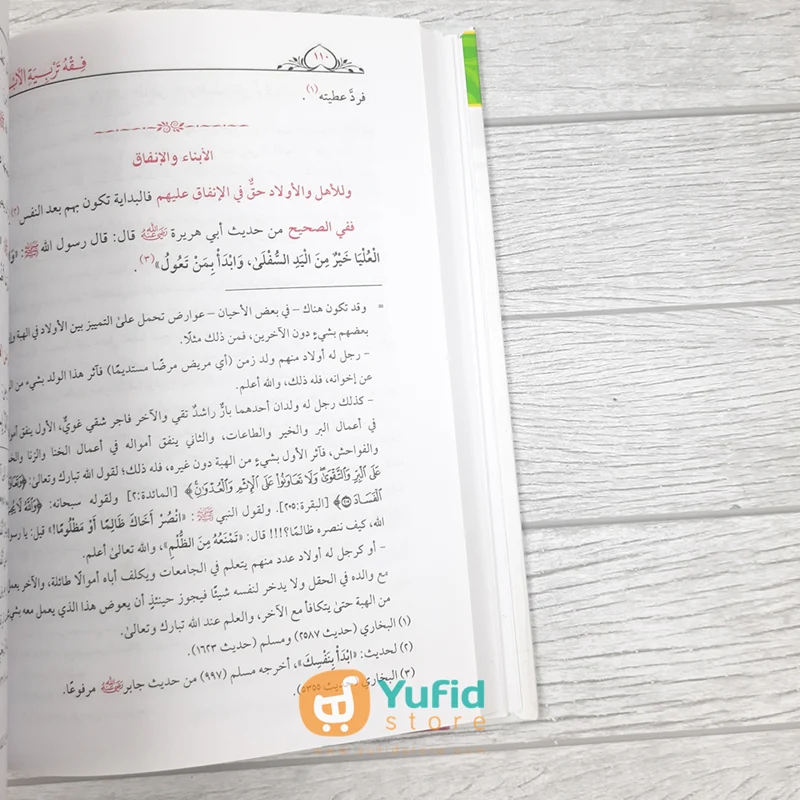 ١١٠
فِقْهُ تَرْبِيَةِ
فردَّ عطيته (١) .
الأبناء والإنفاق
وللأهل والأولاد حقٌّ في الإنفاق عليهم فالبداية تكون بهم بعد النفس (٢)
ففي الصحيح من حديث أبي هريرة رَضِيَ اللهُ عَنْهُ قال: قال رسول الله ﷺ:
الْعُلْيَا خَيْرٌ مِنَ الْيَدِ السُّفْلَىٰ، وَابْدَأْ بِمَنْ تَعُولُ» (٣) .
= وقد تكون هناك – في بعض الأحيان – عوارض تحمل علىٰ التمييز بين الأولاد في الهبة
بعضهم بشيءٍ دون الآخرين، فمن ذلك مثلًا.
– رجل له أولاد منهم ولد زمن (أي مريض مرضًا مستديمًا) فآثر هذا الولد بشيء من
عن إخوانه، فله ذلك، والله أعلم.
– كذلك رجل له ولدان أحدهما بارٌّ راشدٌ تقي والآخر فاجر شقي غويٌّ، الأول ينفق
في أعمال البر والخير والطاعات، والثاني ينفق أمواله في أعمال الخنا والزنا
والفواحش، فآثر الأول بشيءٍ من الهبة دون غيره، فله ذلك؛ لقول الله تبارك وتعالىٰ:
عَلَى ٱلْبِرِّ وَٱلتَّقْوَىٰ وَلَا تَعَاوَنُوا۟ عَلَى ٱلْإِثْمِ وَٱلْعُدْوَٰنِ﴾ [المائدة:٢] ولقوله سبحانه: ﴿وَٱللَّهُ لَا
ٱلْفَسَادَ ٢٠٥﴾ [البقرة:٢٠٥]. ولقول النبي ﷺ: «انْصُرْ أَخَاكَ ظَالِمًا أَوْ مَظْلُومًا!» قيل: يا
الله، كيف ننصره ظالمًا؟!!! قال: «تَمْنَعُهُ مِنَ الظُّلْمِ»، والله تعالىٰ أعلم.
– أو كرجل له أولاد عدد منهم يتعلم في الجامعات ويكلف أباه أموالًا طائلة، والآخر يعمل
مع والده في الحقل ولا يدخر لنفسه شيئًا فيجوز حينئذٍ أن يعوض هذا الذي يعمل معه
من الهبة حتىٰ يتكافأ مع الآخر، والعلم عند الله تبارك وتعالىٰ.
(١) البخاري (حديث ٢٥٨٧) ومسلم (حديث ١٦٢٣).
(٢) لحديث: «ابْدَأْ بِنَفْسِكَ»، أخرجه مسلم (٩٩٧) من حديث جابر رَضِيَ اللهُ عَنْهُ مرفوعًا.
(٣) البخاري (حديث ٥٣٥٥).
Yufid
store